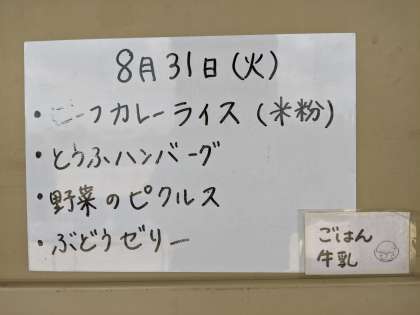 8月31日(火)
・ビーフカレーライス(米粉)
・とうふハンバーグ
・野菜のピクルス
・ぶどうゼリー
ごはん
牛乳